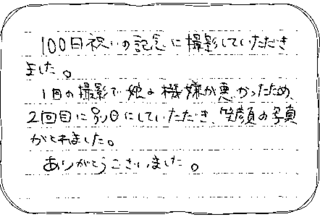 100日祝いの記念に撮影していただき
ました。
1日の撮影で娘の機嫌が悪かったため
2回目に別日にしていただき、笑顔の写真
がとれました。
ありがとうございました。